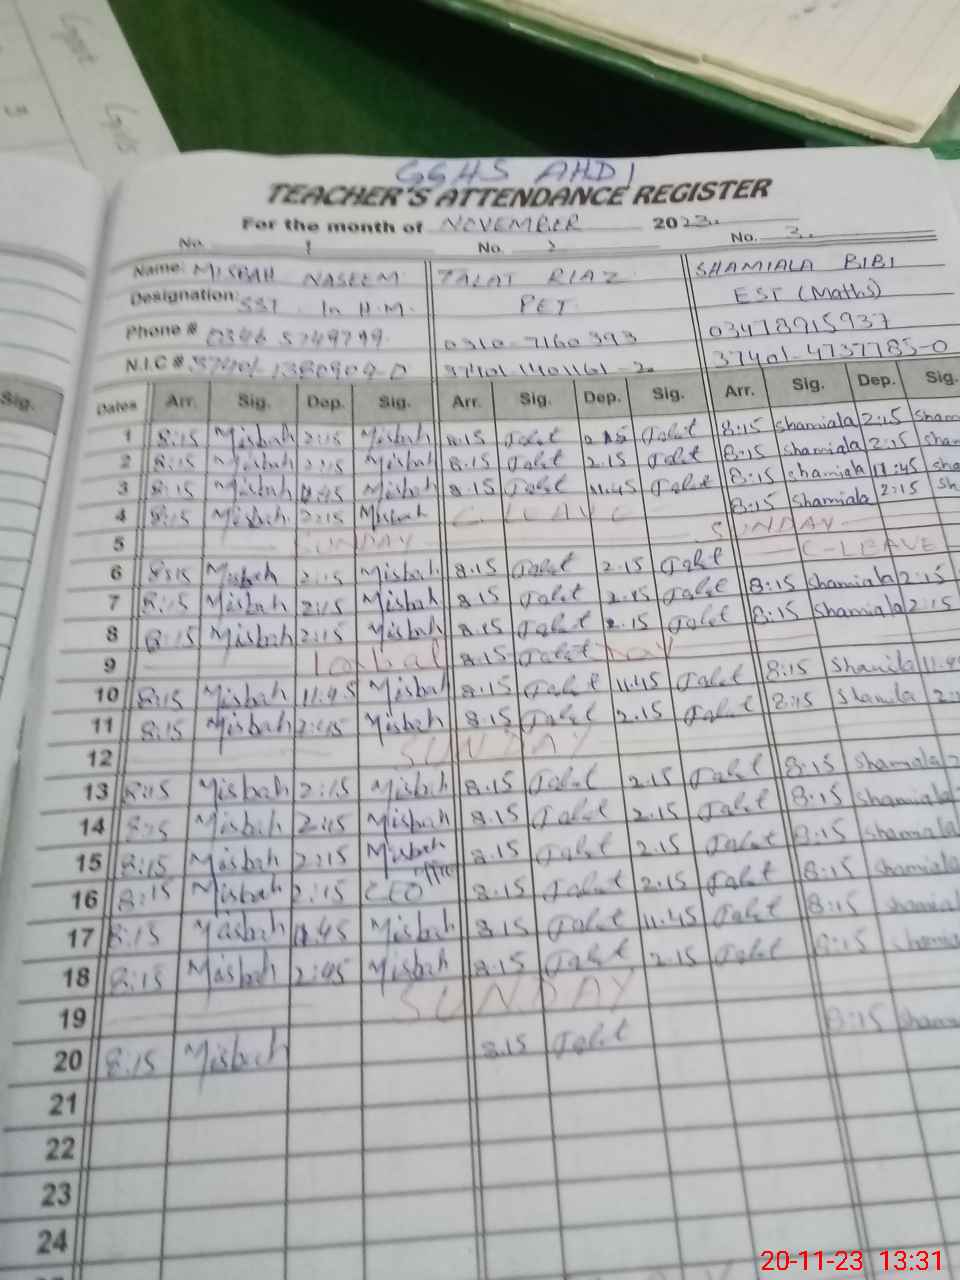 GGHS AHDI
TEACHER'S ATTENDANCE REGISTER
For the month of NOVEMBER 2023.
No. 1 No. 2 No. 3.
Name: MISBAH NASEEM TALAT RIAZ SHAMIALA BIBI
Designation: SST In H.M. PET EST (Maths)
Phone # 0346 5749799 0310-7160393 03478915937
N.I.C # 37401-1380909-0 37401-1401161-2 37401-4737785-0
Sig. Dates Arr. Sig. Dep. Sig. Arr. Sig. Dep. Sig. Arr. Sig. Dep. Sig.
1 8:15 Misbah 2:15 Misbah 8.15 Talat 2.15 Talat 8:15 Shamiala 2:15 Sham
2 8:15 Misbah 2:15 Misbah 8.15 Talat 2.15 Talat 8:15 Shamiala 2:15 Sham
3 8:15 Misbah 11:45 Misbah 8.15 Talat 11.45 Talat 8:15 Shamiala 11:45 Sha
4 8:15 Misbah 2:15 Misbah C. LEAVE 8:15 Shamiala 2:15 Sh
5 SUNDAY SUNDAY
6 8:15 Misbah 2:15 Misbah 8.15 Talat 2.15 Talat C-LEAVE
7 8:15 Misbah 2:15 Misbah 8.15 Talat 2.15 Talat 8:15 Shamiala 2:15
8 8:15 Misbah 2:15 Misbah 8.15 Talat 2.15 Talat 8:15 Shamiala 2:15
9 Iqbal 8.15 Talat Day
10 8:15 Misbah 11:45 Misbah 8.15 Talat 11.45 Talat 8:15 Shamila 11:4
11 8:15 Misbah 2:15 Misbah 8.15 Talat 2.15 Talat 8:15 Shamila 2:
12 SUNDAY
13 8:15 Misbah 2:15 Misbah 8.15 Talat 2.15 Talat 8:15 Shamiala 2
14 8:15 Misbah 2:15 Misbah 8.15 Talat 2.15 Talat 8:15 Shamiala
15 8:15 Misbah 2:15 Misbah 8.15 Talat 2.15 Talat 8:15 Shamiala
16 8:15 Misbah 2:15 CEO office 8.15 Talat 2.15 Talat 8:15 Shamiala
17 8:15 Misbah 11:45 Misbah 8.15 Talat 11.45 Talat 8:15 Shamial
18 8:15 Misbah 2:45 Misbah 8.15 Talat 2.15 Talat 8:15 Shamia
19 SUNDAY
20 8:15 Misbah 8.15 Talat 8:15 Shami
21
22
23
24
20-11-23 13:31